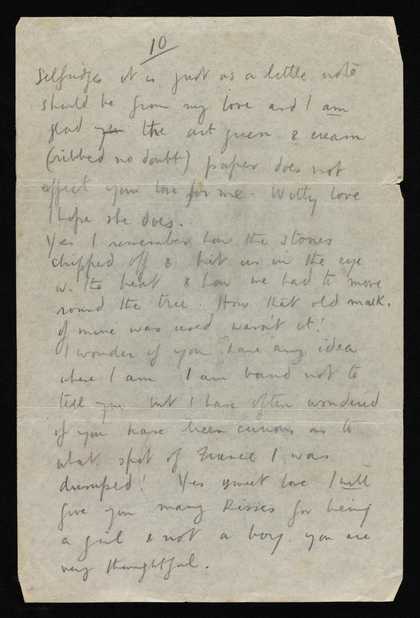 10
Selfridges it is just as a little note
should be from my love and I am
glad the art green & cream
(ribbed no doubt) paper does not
affect your love for me. Witty love
I hope she does.
Yes I remember how the stones
chipped off & hit us in the eye
w. the heat & how we had to move
round the tree. How that old mack.
of mine was used wasn't it!
I wonder if you have any idea
where I am I am bound not to
tell you but I have often wondered
if you have been curious as to
what spot of France I was
dumped! Yes sweet love I will
give you many kisses for being
a girl & not a boy. you are
very thoughtful.